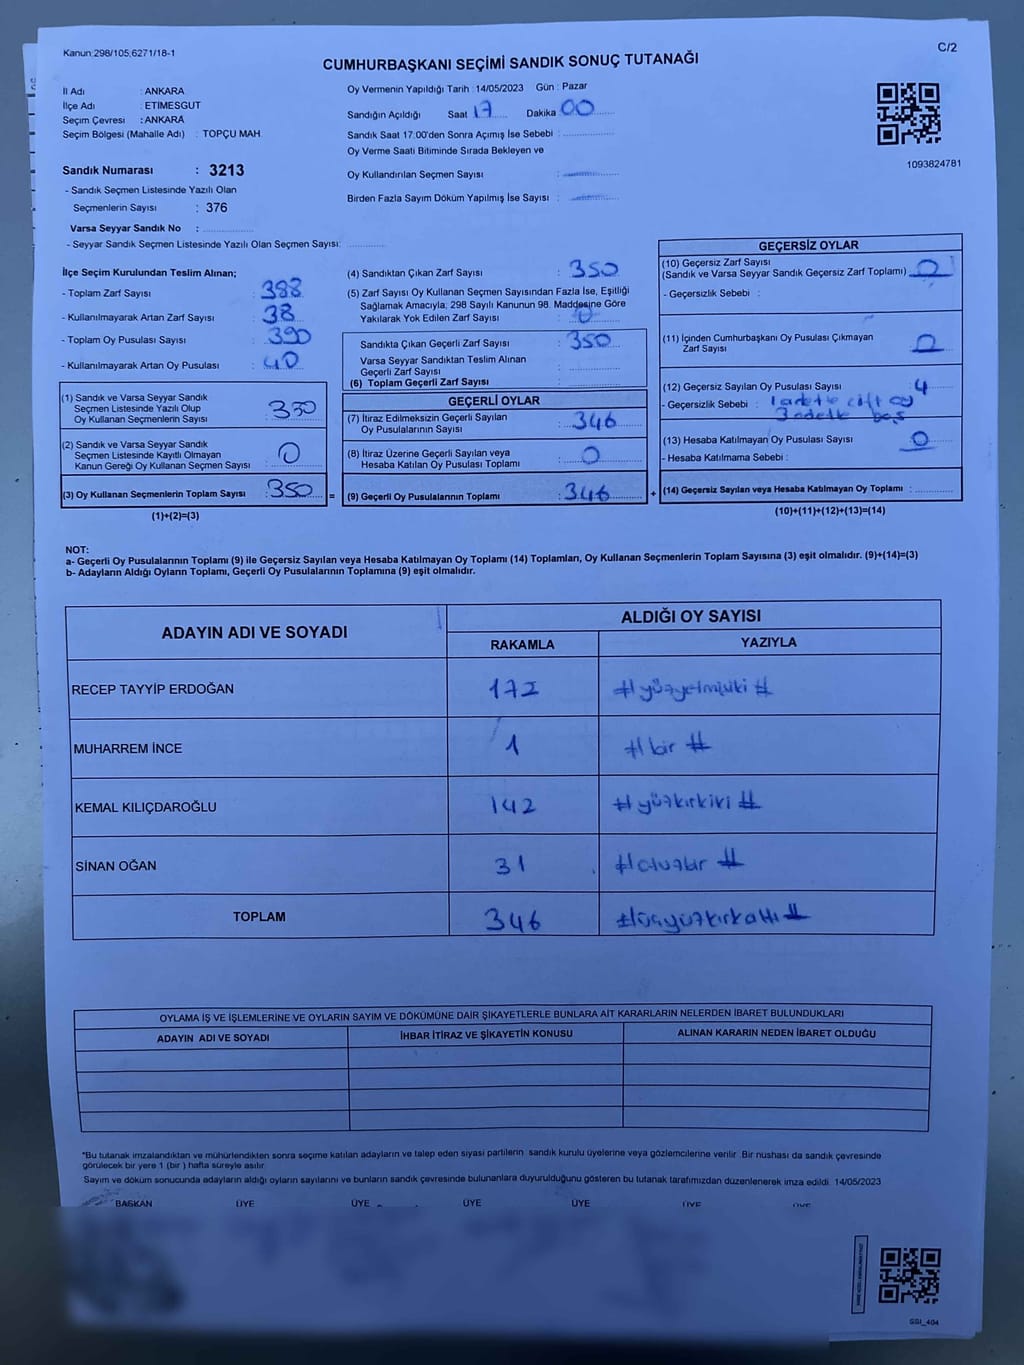 Kanun:298/105;6271/18-1
C/2
CUMHURBAŞKANI SEÇİMİ SANDIK SONUÇ TUTANAĞI
İl Adı : ANKARA
İlçe Adı : ETİMESGUT
Seçim Çevresi : ANKARA
Seçim Bölgesi (Mahalle Adı) : TOPÇU MAH.
Sandık Numarası : 3213
- Sandık Seçmen Listesinde Yazılı Olan
Seçmenlerin Sayısı : 376
Varsa Seyyar Sandık No :
- Seyyar Sandık Seçmen Listesinde Yazılı Olan Seçmen Sayısı:
Oy Vermenin Yapıldığı Tarih : 14/05/2023 Gün : Pazar
Sandığın Açıldığı Saat 17 Dakika 00
Sandık Saat 17:00'den Sonra Açımış İse Sebebi :
Oy Verme Saati Bitiminde Sırada Bekleyen ve
Oy Kullandırılan Seçmen Sayısı :
Birden Fazla Sayım Döküm Yapılmış İse Sayısı :
1093824781
İlçe Seçim Kurulundan Teslim Alınan;
- Toplam Zarf Sayısı : 388
- Kullanılmayarak Artan Zarf Sayısı : 38
- Toplam Oy Pusulası Sayısı : 390
- Kullanılmayarak Artan Oy Pusulası : 40
(1) Sandık ve Varsa Seyyar Sandık
Seçmen Listesinde Yazılı Olup
Oy Kullanan Seçmenlerin Sayısı : 350
(2) Sandık ve Varsa Seyyar Sandık
Seçmen Listesinde Kayıtlı Olmayan
Kanun Gereği Oy Kullanan Seçmen Sayısı : 0
(3) Oy Kullanan Seçmenlerin Toplam Sayısı : 350 =
(1)+(2)=(3)
(4) Sandıktan Çıkan Zarf Sayısı : 350
(5) Zarf Sayısı Oy Kullanan Seçmen Sayısından Fazla İse, Eşitliği
Sağlamak Amacıyla; 298 Sayılı Kanunun 98. Maddesine Göre
Yakılarak Yok Edilen Zarf Sayısı : 0
Sandıkta Çıkan Geçerli Zarf Sayısı : 350
Varsa Seyyar Sandıktan Teslim Alınan
Geçerli Zarf Sayısı :
(6) Toplam Geçerli Zarf Sayısı :
GEÇERLİ OYLAR
(7) İtiraz Edilmeksizin Geçerli Sayılan
Oy Pusulalarının Sayısı : 346
(8) İtiraz Üzerine Geçerli Sayılan veya
Hesaba Katılan Oy Pusulası Toplamı : 0
(9) Geçerli Oy Pusulalarının Toplamı : 346 +
GEÇERSİZ OYLAR
(10) Geçersiz Zarf Sayısı
(Sandık ve Varsa Seyyar Sandık Geçersiz Zarf Toplamı) : 0
- Geçersizlik Sebebi :
(11) İçinden Cumhurbaşkanı Oy Pusulası Çıkmayan
Zarf Sayısı : 0
(12) Geçersiz Sayılan Oy Pusulası Sayısı : 4
- Geçersizlik Sebebi : 1 adette çift oy
3 adette boş
(13) Hesaba Katılmayan Oy Pusulası Sayısı : 0
- Hesaba Katılmama Sebebi :
(14) Geçersiz Sayılan veya Hesaba Katılmayan Oy Toplamı :
(10)+(11)+(12)+(13)=(14)
NOT:
a- Geçerli Oy Pusulalarının Toplamı (9) ile Geçersiz Sayılan veya Hesaba Katılmayan Oy Toplamı (14) Toplamları, Oy Kullanan Seçmenlerin Toplam Sayısına (3) eşit olmalıdır. (9)+(14)=(3)
b- Adayların Aldığı Oyların Toplamı, Geçerli Oy Pusulalarının Toplamına (9) eşit olmalıdır.
ADAYIN ADI VE SOYADI
ALDIĞI OY SAYISI
RAKAMLA YAZIYLA
RECEP TAYYİP ERDOĞAN 172 # yüzyetmişiki #
MUHARREM İNCE 1 # bir #
KEMAL KILIÇDAROĞLU 142 # yüzkırkiki #
SİNAN OĞAN 31 # otuzbir #
TOPLAM 346 # üçyüzkırkaltı #
OYLAMA İŞ VE İŞLEMLERİNE VE OYLARIN SAYIM VE DÖKÜMÜNE DAİR ŞİKAYETLERLE BUNLARA AİT KARARLARIN NELERDEN İBARET BULUNDUKLARI
ADAYIN ADI VE SOYADI İHBAR İTİRAZ VE ŞİKAYETİN KONUSU ALINAN KARARIN NEDEN İBARET OLDUĞU
*Bu tutanak imzalandıktan ve mühürlendikten sonra seçime katılan adayların ve talep eden siyasi partilerin sandık kurulu üyelerine veya gözlemcilerine verilir. Bir nüshası da sandık çevresinde
görülecek bir yere 1 (bir ) hafta süreyle asılır.
Sayım ve döküm sonucunda adayların aldığı oyların sayılarını ve bunların sandık çevresinde bulunanlara duyurulduğunu gösteren bu tutanak tarafımızdan düzenlenerek imza edildi. 14/05/2023
BAŞKAN ÜYE ÜYE ÜYE ÜYE ÜYE ÜYE
SGI_404